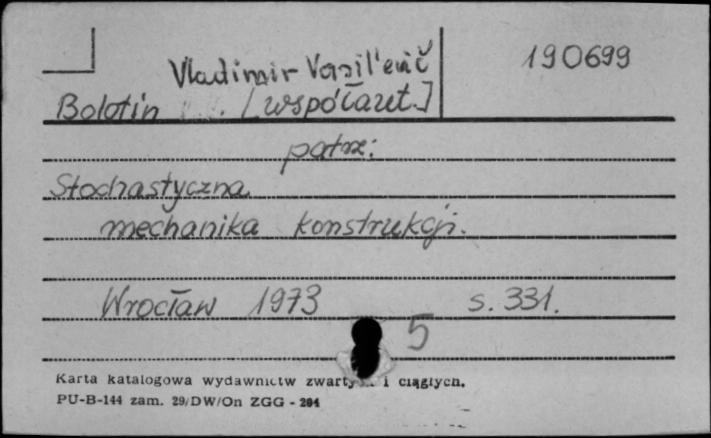 190699
Vladimir Vasil'evič
Bolotin [współaut.]
patrz:
Stochastyczna
mechanika konstrukcji.
Wrocław 1973 s. 331.
5
Karta katalogowa wydawnictw i ciągłych.
PU-B-144 zam. 29/DW/On ZGG - 204